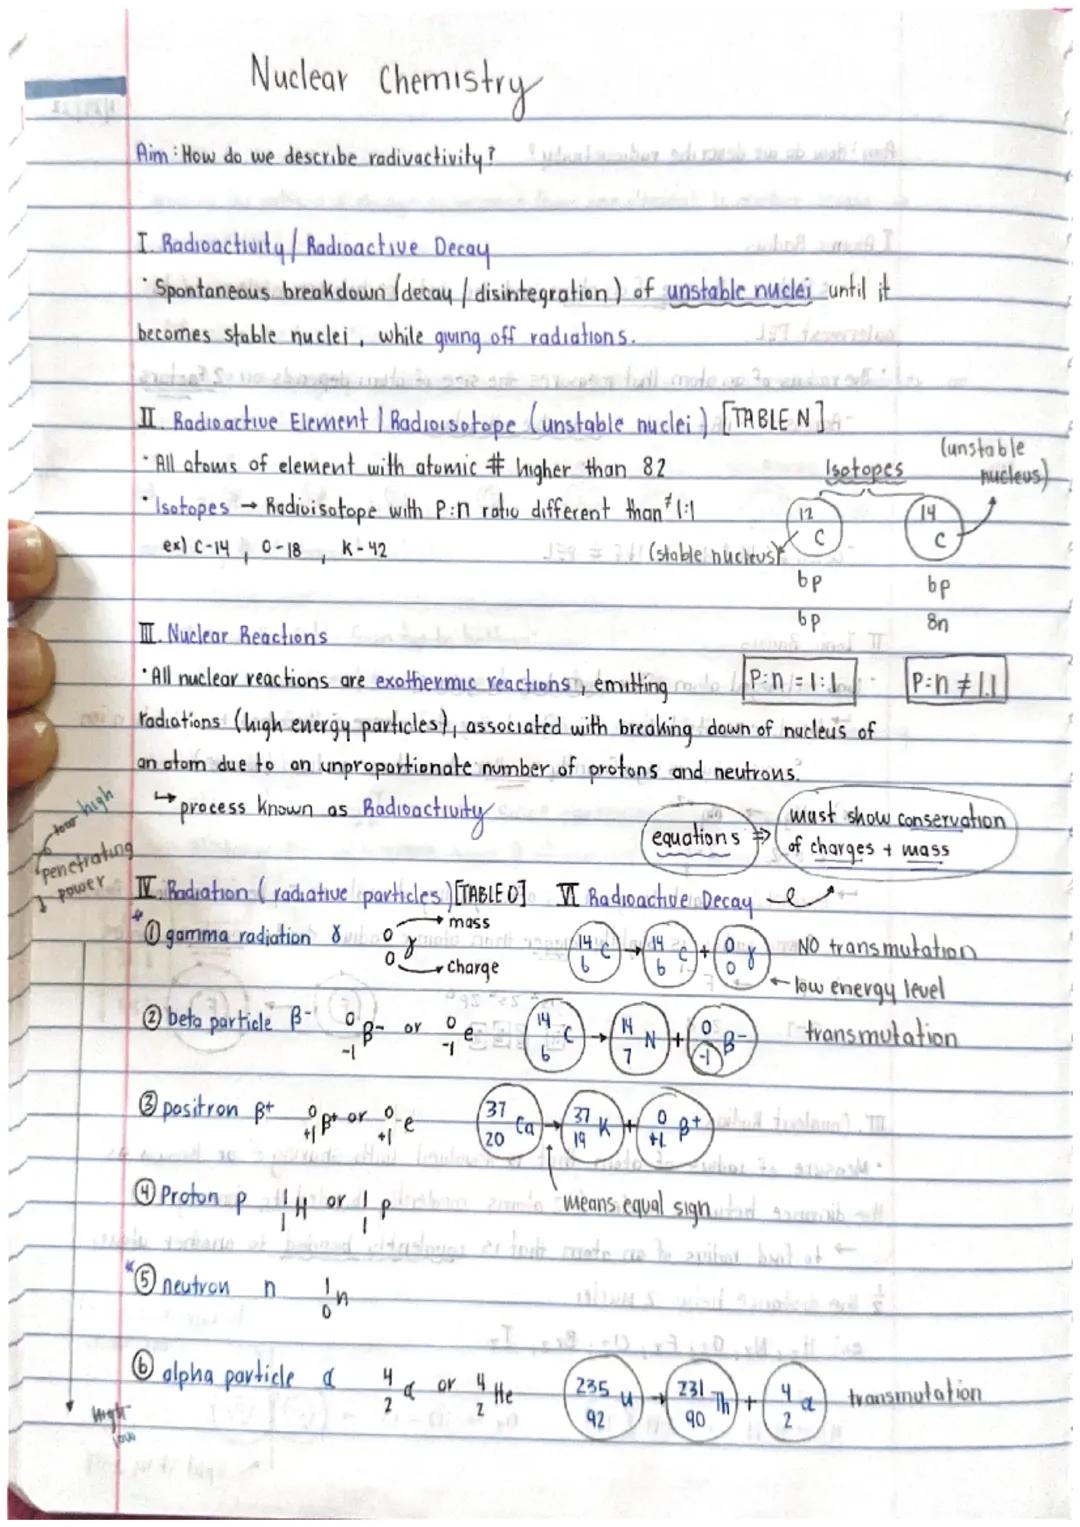 Nuclear Chemistry
Aim: How do we describe radivactivity?
I. Radioactivity / Radioactive Decay
· Spontaneous breakdown (decay / disintegration) of unstable nuclei until it
becomes stable nuclei, while giving off radiations.
II. Radioactive Element / Radioisotope (unstable nuclei) [TABLE N]
· All atoms of element with atomic # higher than 82
· Isotopes → Radioisotope with P:n ratio different than ≠ 1:1
ex) C-14, O-18, K-42
Isotopes
(unstable nucleus)
12 C
14 C
(stable nucleus)
6p
6p
6p
8n
P:n = 1:1
P:n ≠ 1:1
III. Nuclear Reactions
· All nuclear reactions are exothermic reactions, emitting
radiations (high energy particles), associated with breaking down of nucleus of
an atom due to an unproportionate number of protons and neutrons.
↳ process known as Radioactivity
equations ⇒ must show conservation
of charges + mass
high
penetrating
power
IV. Radiation (radiative particles) [TABLE O] VI Radioactive Decay
* ① gamma radiation γ 0 0 γ mass charge 14 6 C → 14 6 C + 0 0 γ NO transmutation
← low energy level
② beta particle β- 0 -1 β- or 0 -1 e 14 6 C → 14 7 N + 0 -1 β- transmutation
③ positron β+ 0 +1 β+ or 0 +1 e 37 20 Ca → 37 19 K + 0 +1 β+
means equal sign
④ Proton p 1 1 H or 1 1 p
* ⑤ neutron n 1 0 n
⑥ alpha particle α 4 2 α or 4 2 He 235 92 U → 231 90 Th + 4 2 α transmutation
low